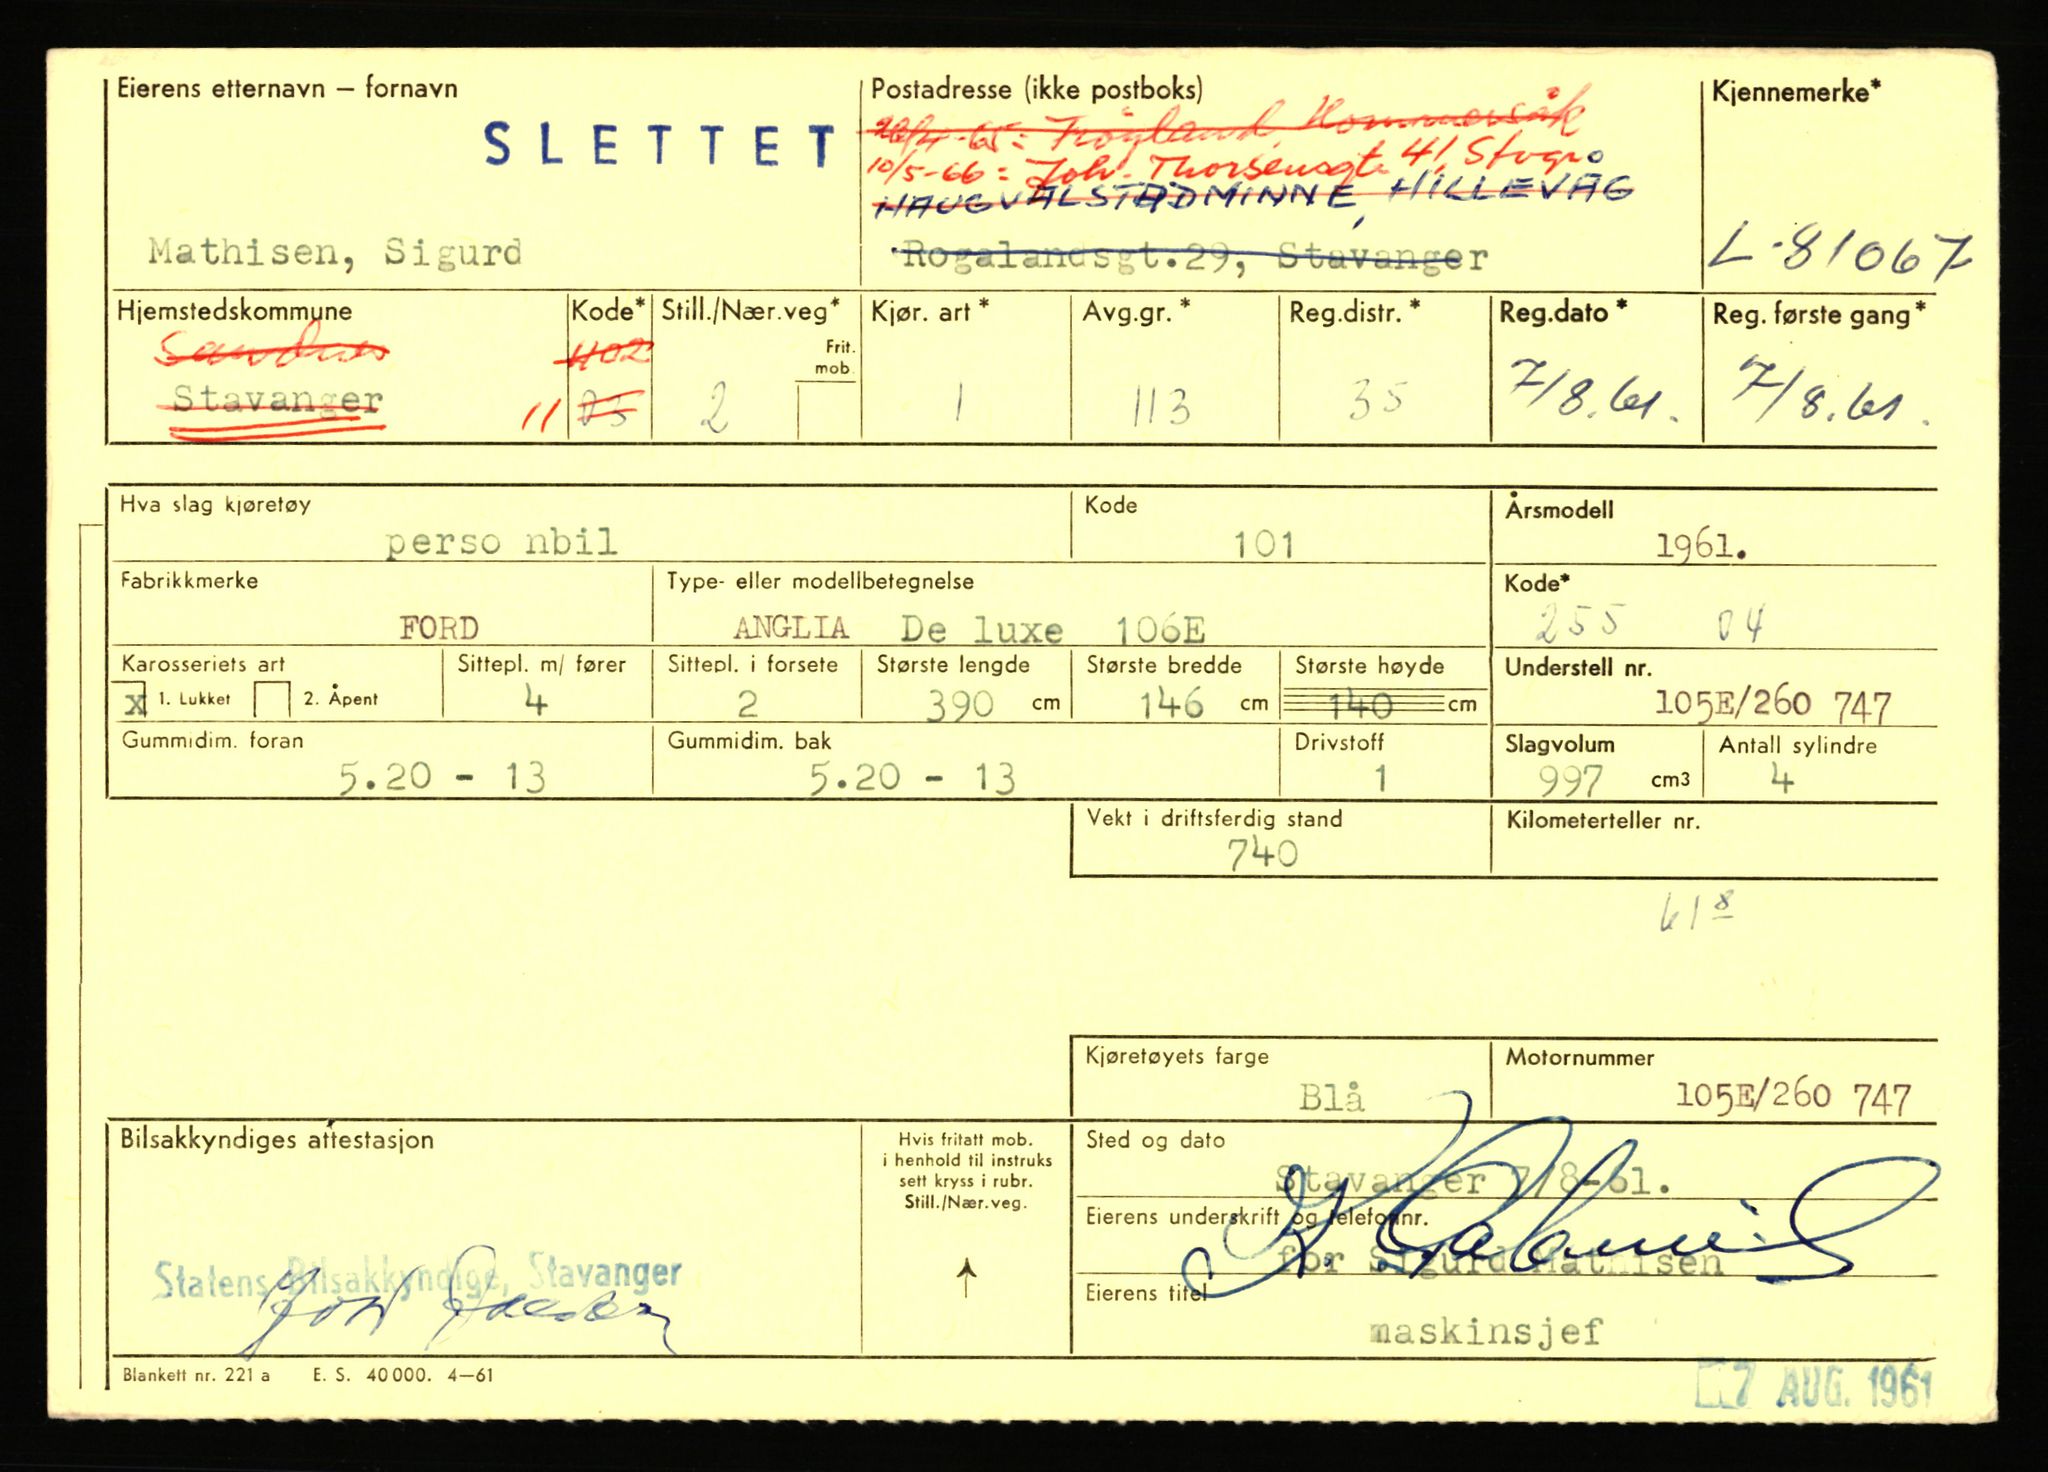 Eierens etternavn – fornavn
SLETTET
Mathisen, Sigurd
Postadresse (ikke postboks)
Hommersåk
10/5-66: Joh. Thorsensgt. 41, Stvgr.
HAUGVALSTADMINNE, HILLEVÅG
Rogalandsgt.29, Stavanger
Kjennemerke*
L-81067
Hjemstedskommune
Sandnes
Stavanger
Kode*
1102
11 03
Still./Nær.veg*
Frit.
mob.
2
Kjør. art*
1
Avg.gr.*
113
Reg.distr.*
35
Reg.dato*
7/8.61.
Reg. første gang*
7/8.61.
Hva slag kjøretøy
perso nbil
Kode
101
Årsmodell
1961.
Fabrikkmerke
FORD
Type- eller modellbetegnelse
ANGLIA De luxe 106E
Kode*
255 04
Karosseriets art
x 1. Lukket 2. Åpent
Sittepl. m/ fører
4
Sittepl. i forsete
2
Største lengde
390 cm
Største bredde
146 cm
Største høyde
140 cm
Understell nr.
105E/260 747
Gummidim. foran
5.20 - 13
Gummidim. bak
5.20 - 13
Drivstoff
1
Slagvolum
997 cm3
Antall sylindre
4
Vekt i driftsferdig stand
740
Kilometerteller nr.
61 8
Kjøretøyets farge
Blå
Motornummer
105E/260 747
Bilsakkyndiges attestasjon
Statens Bilsakkyndige, Stavanger
Hvis fritatt mob.
i henhold til instruks
sett kryss i rubr.
Still./Nær.veg.
Sted og dato
Stavanger 7/8-61.
Eierens underskrift og telefonnr.
for Sigurd Mathisen
Eierens titel
maskinsjef
Blankett nr. 221 a E. S. 40 000. 4–61
7 AUG. 1961